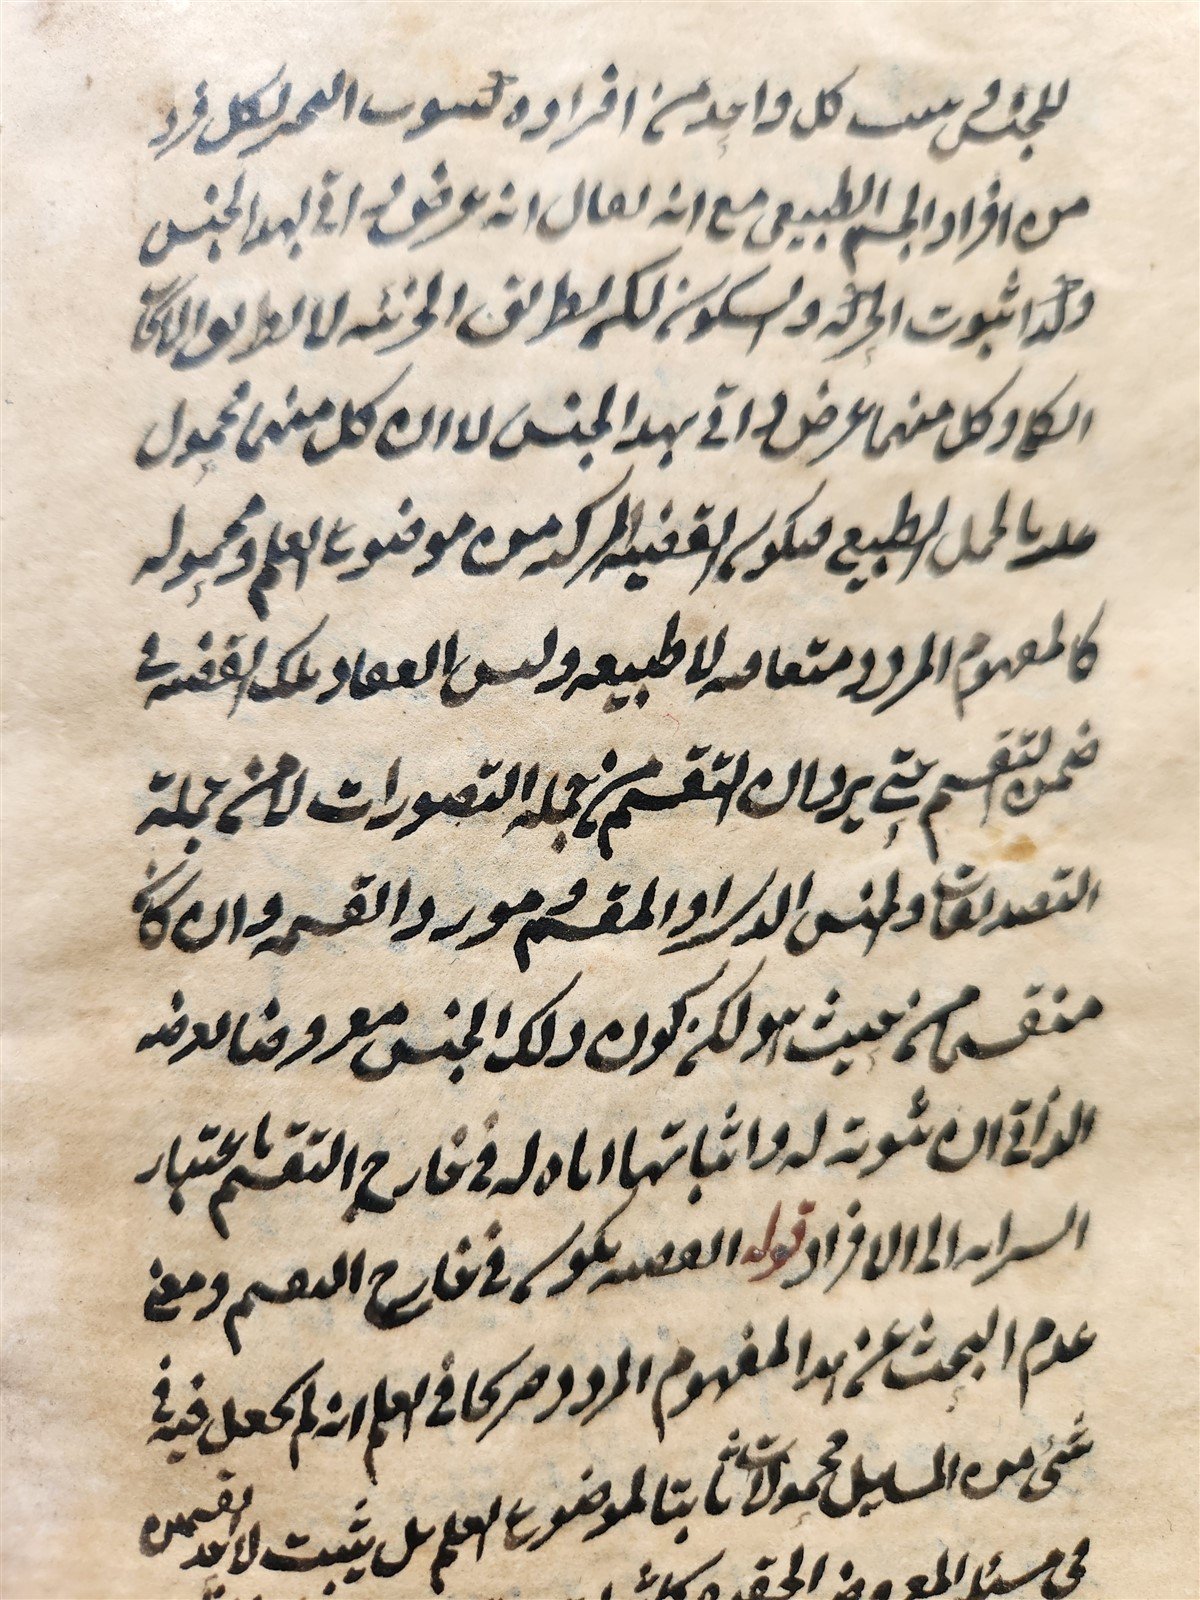 للجنس وليست كل واحد من افراده كثبوت التحيز لكل فرد
من افراد الجسم الطبيعي مع انه يقال انه عرض ذاتي لهذا الجنس
وكذا ثبوت الحركة والسكون لكم بطريق الجزئية لا بطريق
الكل وكل منهما عرض ذاتي بهذا الجنس لا ان كل منهما محمول
عليه بالحمل الطبيعي فيكون القضية المركبة من موضوع العلم ومحموله
كالمفهوم المردد متعارفه لا طبيعيه وليس انعقاد تلك القضيه في
ضمن التقسيم حتى يرد ان التقسيم من جملة التصورات لا من جملة
التصديقات وليس الدير او المقسم مورد القسمه وان كان
منقسما من حيث هو لكن كون ذلك الجنس معروضا لعرضه
الذاتي ان ثبوته له واثباتها اياه له في خارج التقسيم باعتبار
السرايه الى الافراد قوله القضيه يكون في خارج التقسيم ومعنى
عدم البحث عن هذا المفهوم المردد صريحا في العلم انه لم يجعل فيه في
شئ من المسايل محمولات ثابتا لموضوع العلم بل يثبت لاحد قسميه
في مسئله المعروض الحقيقي